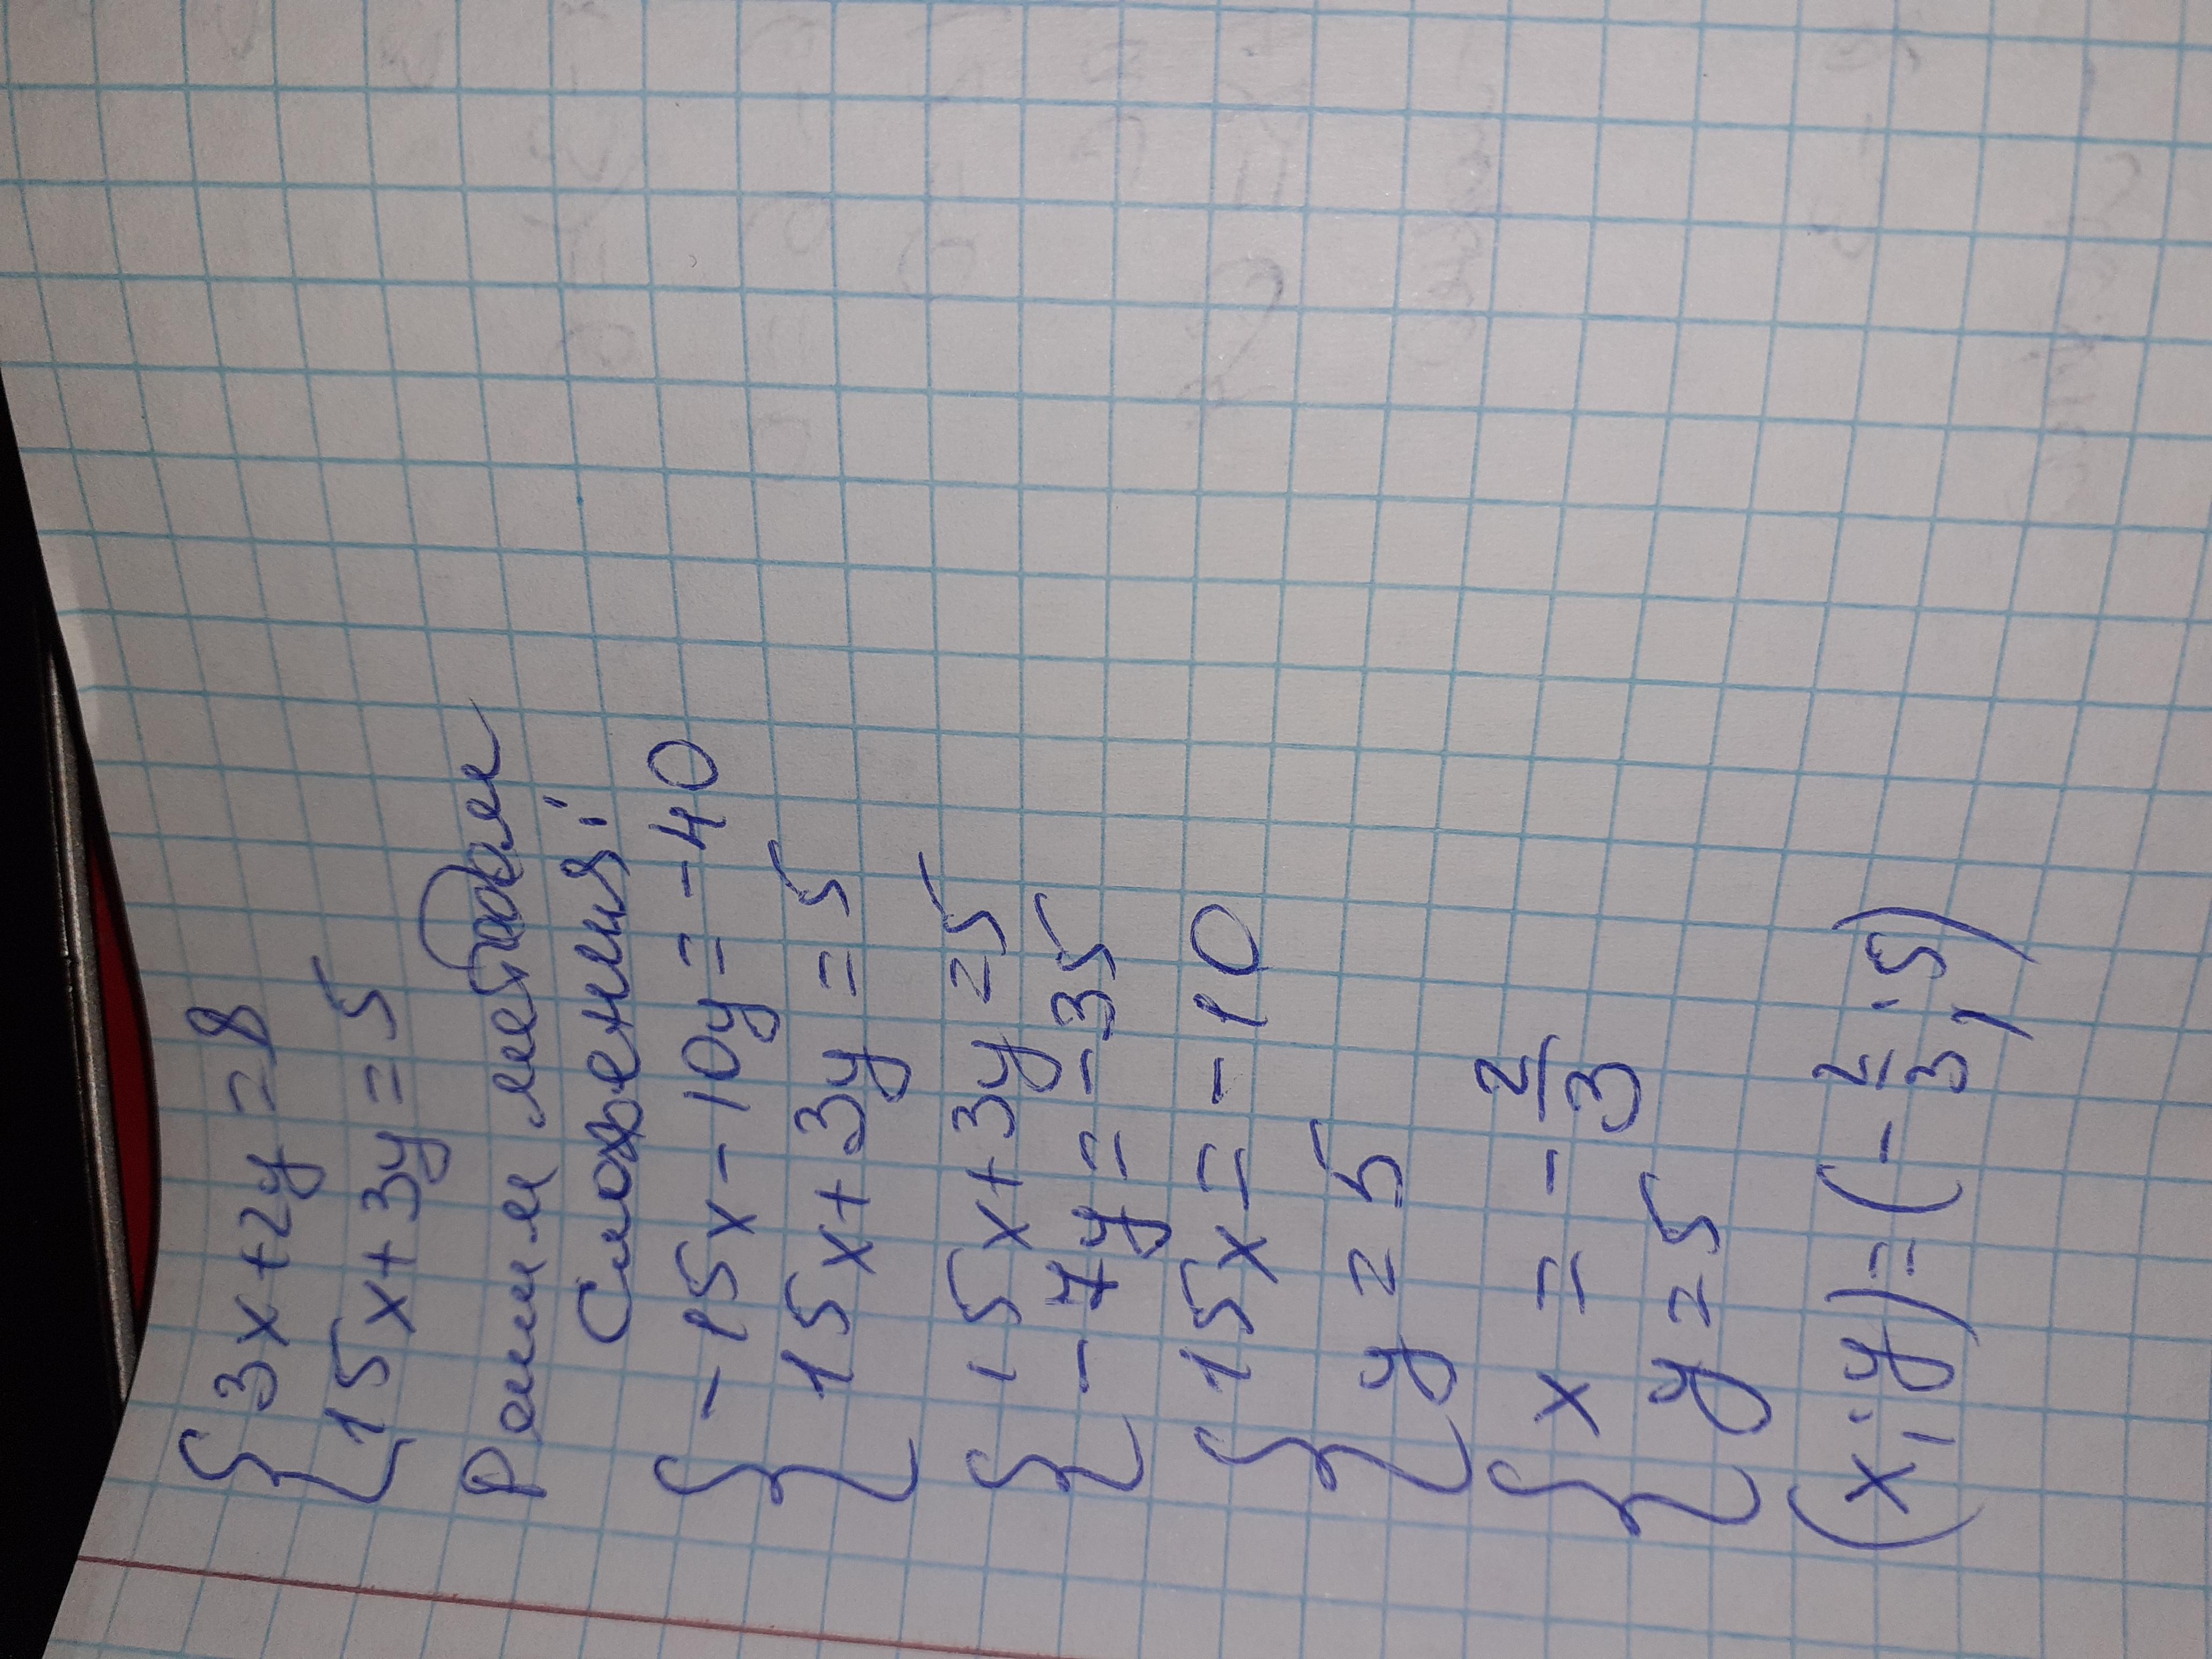 { 3x+2y=8
15x+3y=5
Решим методом
сложения:
{ -15x-10y=-40
15x+3y=5
{ 15x+3y=5
-7y=-35
{ 15x=-10
y=5
{ x=-2/3
y=5
(x;y)=(-2/3;5)